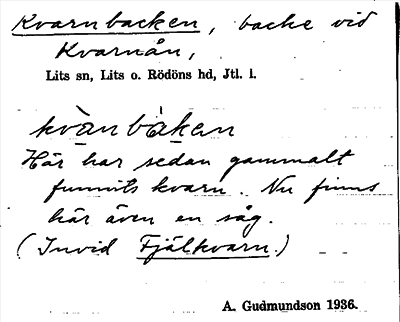 Kvarnbacken, backe vid
Kvarnån,
Lits sn, Lits o. Rödöns hd, Jtl. l.
kvànbàkan
Här har sedan gammalt
funnits kvarn. Nu finns
här även en såg.
(Invid Fjälkvarn.)
A. Gudmundson 1936.